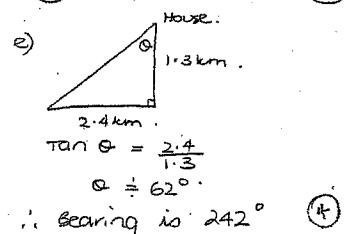 House.
e)
θ
1.3 km.
2.4 km.
Tan θ = 2.4
1.3
θ ≑ 62°.
∴ Bearing is 242°
4